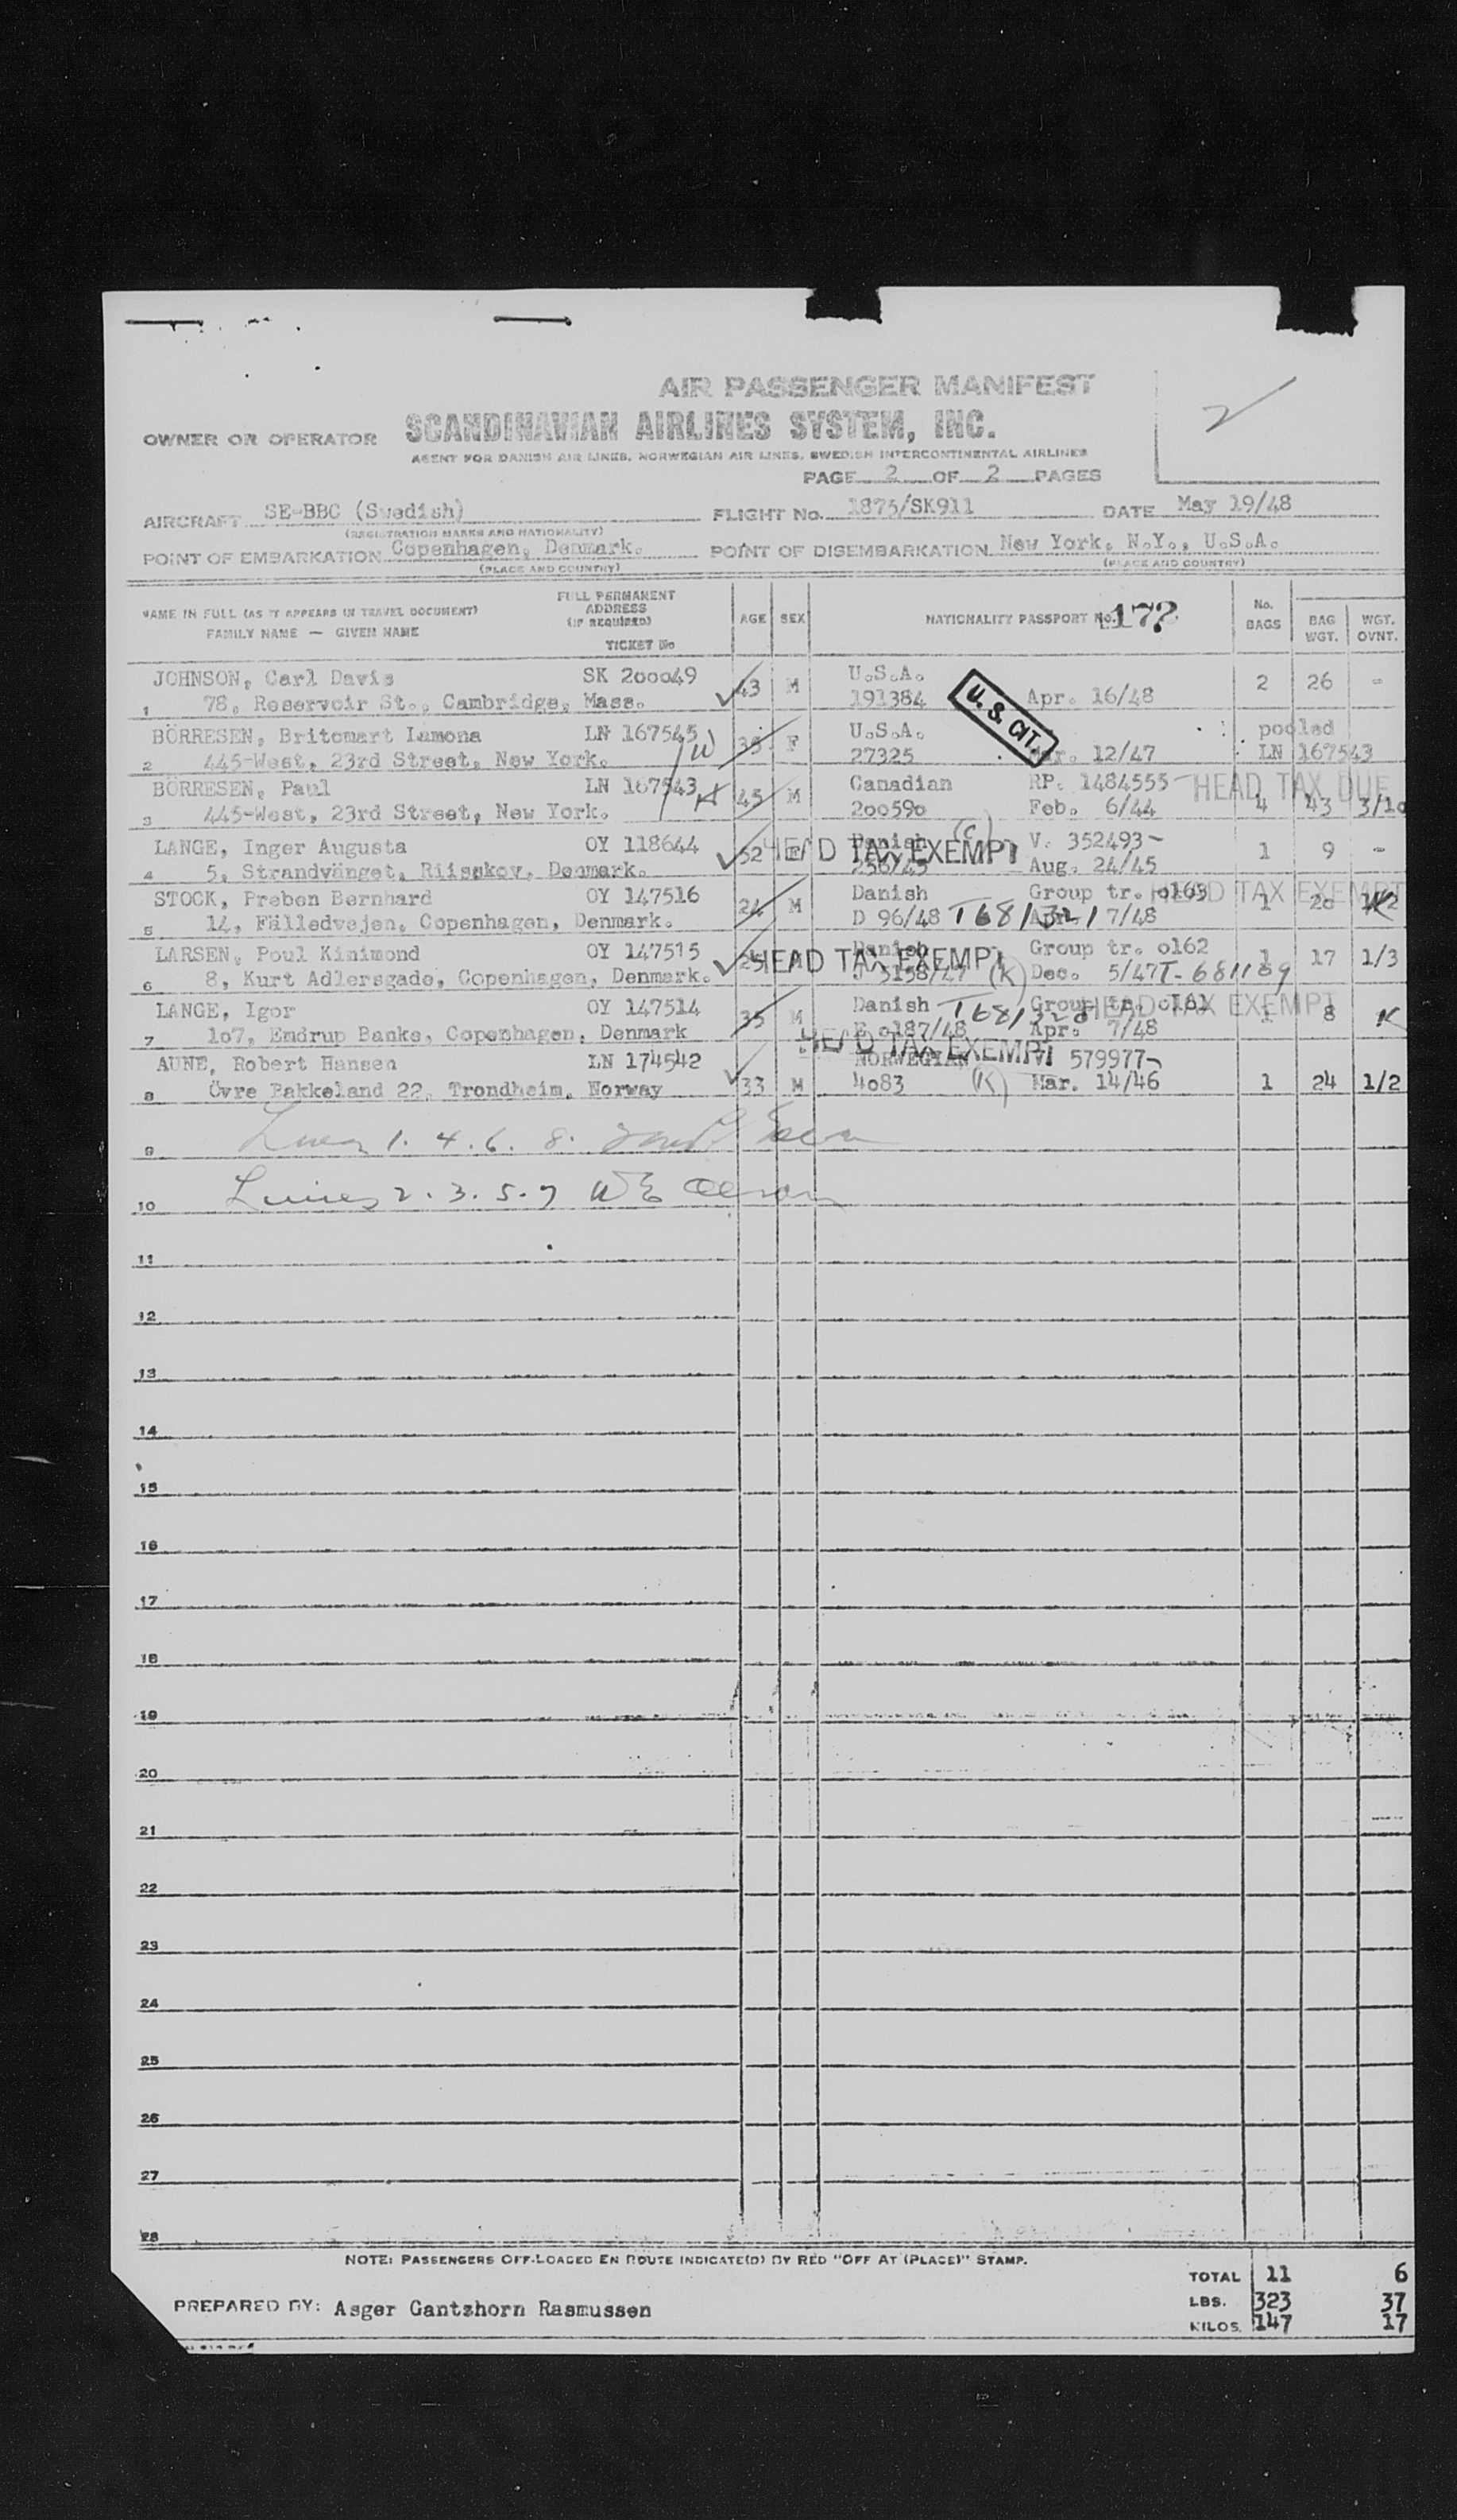 AIR PASSENGER MANIFEST
OWNER OR OPERATOR SCANDINAVIAN AIRLINES SYSTEM, INC.
AGENT FOR DANISH AIR LINES, NORWEGIAN AIR LINES, SWEDISH INTERCONTINENTAL AIRLINES
PAGE 2 OF 2 PAGES
AIRCRAFT SE-BBC (Swedish) FLIGHT No. 1875/SK911 DATE May 19/48
(REGISTRATION MARKS AND NATIONALITY)
POINT OF EMBARKATION Copenhagen, Denmark. POINT OF DISEMBARKATION New York, N.Y., U.S.A.
(PLACE AND COUNTRY) (PLACE AND COUNTRY)
NAME IN FULL (AS IT APPEARS IN TRAVEL DOCUMENT) FULL PERMANENT ADDRESS (IF REQUIRED) AGE SEX NATIONALITY PASSPORT No. 172 No. BAGS BAG WGT. WGT. OVNT.
FAMILY NAME — GIVEN NAME TICKET No
JOHNSON, Carl Davis SK 200049 43 M U.S.A. 2 26 -
1 78, Reservoir St., Cambridge, Mass. 191384 Apr. 16/48
U. S. CIT.
BÖRRESEN, Britomart Lamona LN 167545 F U.S.A. pooled
2 445-West, 23rd Street, New York. 27325 12/47 LN 167543
BÖRRESEN, Paul LN 167543 45 M Canadian RP. 1484555 HEAD TAX DUE
3 445-West, 23rd Street, New York. 200590 Feb. 6/44 4 43 3/10
LANGE, Inger Augusta OY 118644 52 HEAD TAX EXEMPT (C) Danish V. 352493- 1 9 -
4 5, Strandvänget, Riisskov, Denmark. Aug. 24/45
STOCK, Preben Bernhard OY 147516 24 M Danish Group tr. o163 HEAD TAX EXEMPT
5 14, Fälledvejen, Copenhagen, Denmark. D 96/48 T681321 Apr. 7/48 1 20
LARSEN, Poul Kinimond OY 147515 HEAD TAX EXEMPT Danish Group tr. o162 1 17 1/3
6 8, Kurt Adlersgade, Copenhagen, Denmark. (K) Dec. 5/47 T-681189
LANGE, Igor OY 147514 35 M Danish Group tr. HEAD TAX EXEMPT 1 8 K
7 107, Emdrup Banke, Copenhagen, Denmark E o187/48 Apr. 7/48
HEAD TAX EXEMPT
AUNE, Robert Hansen LN 174542 33 M NORWEGIAN V. 579977-
8 Övre Bakkeland 22, Trondheim, Norway 4083 (K) Mar. 14/46 1 24 1/2
9 1. 4. 6. 8.
10 Lines 2. 3. 5. 7
11
12
13
14
15
16
17
18
19
20
21
22
23
24
25
26
27
28
NOTE: PASSENGERS OFF-LOADED EN ROUTE INDICATE(D) BY RED "OFF AT (PLACE)" STAMP.
TOTAL 11 6
LBS. 323 37
KILOS. 147 17
PREPARED BY: Asger Gantzhorn Rasmussen